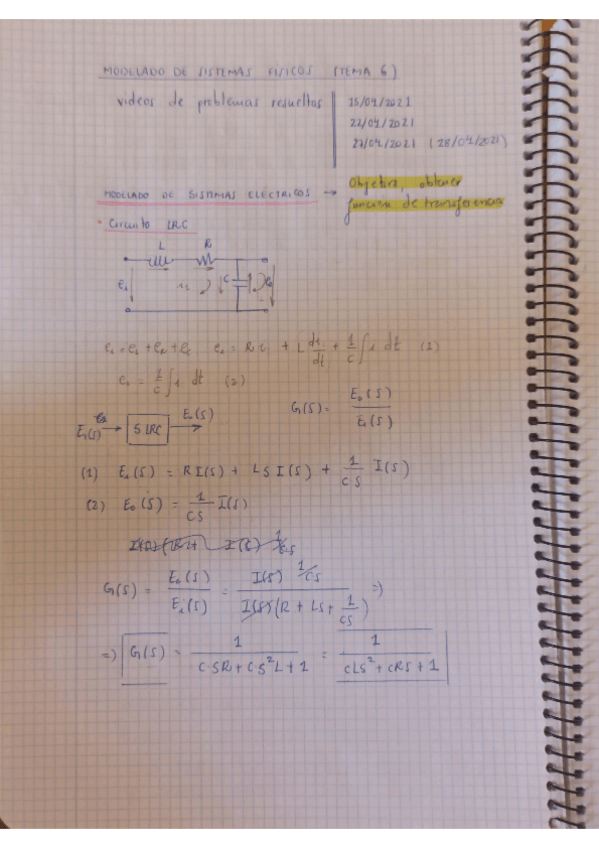 MODELADO DE SISTEMAS FISICOS (TEMA 6)
videos de problemas resueltos
15/04/2021
22/04/2021
27/04/2021 (28/04/2021)
MODELADO DE SISTEMAS ELECTRICOS → Objetivo, obtener
función de transferencia
• Circuito LRC
L R
ei i C eo
e = R i + L di/dt + 1/C ∫ i dt (1)
eo = 1/C ∫ i dt (2)
Ei(S) → S LRC → Eo(S)
G(S) = Eo(S) / Ei(S)
(1) Ei(S) = R I(S) + L S I(S) + 1/CS I(S)
(2) Eo(S) = 1/CS I(S)
G(S) = Eo(S) / Ei(S) = I(S) 1/CS / I(S) (R + LS + 1/CS) =>
=> G(S) = 1 / CSR + CS²L + 1 = 1 / CLS² + CRS + 1